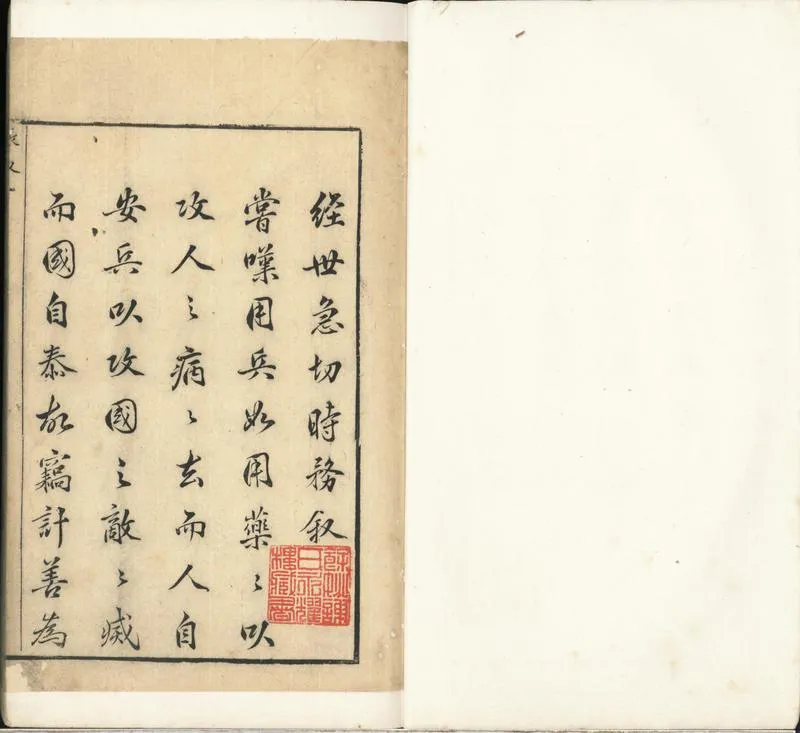 経世急切時務叙
嘗嘆用兵如用藥〻以
攻人之病〻去而人自
安兵以攻國之敵〻滅
而國自泰故竊計善為